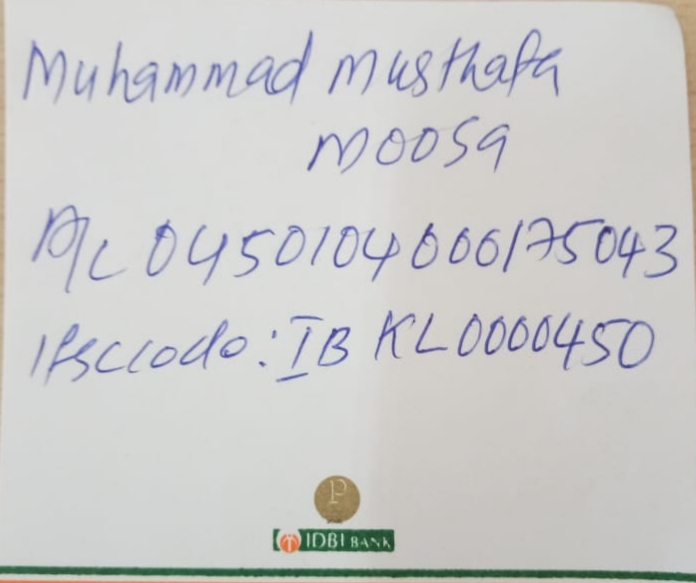 Muhammad Musthafa
Moosa
A/c 0450104000175043
Ifsccode: IBKL0000450
P
IDBI BANK